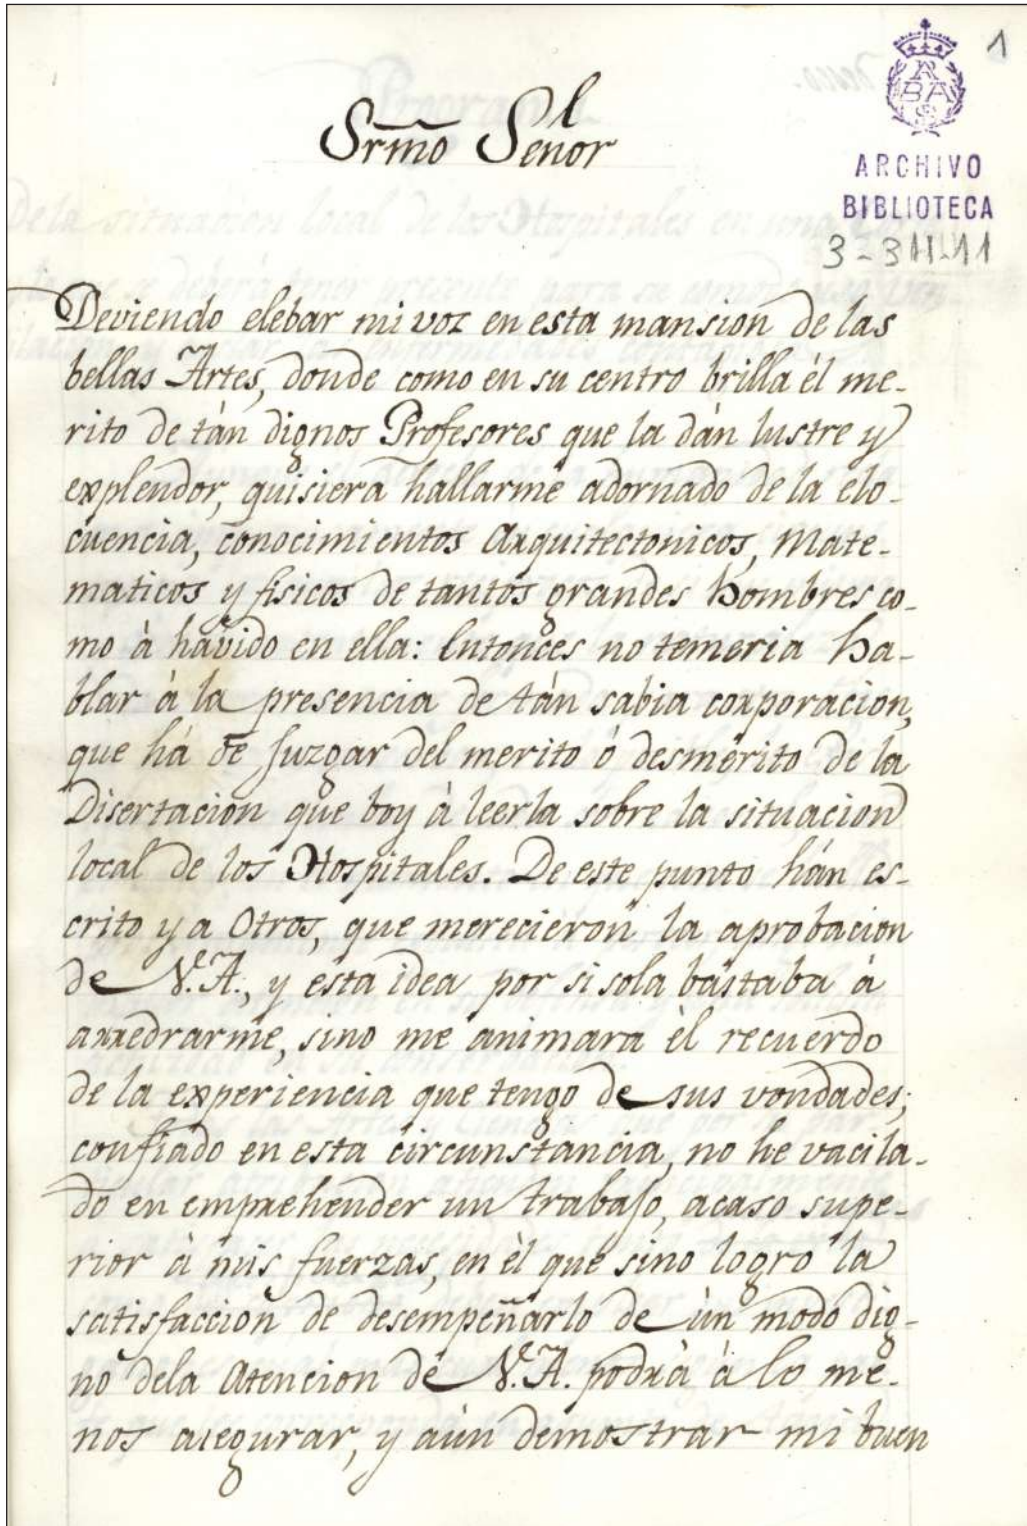 1
RABASF
ARCHIVO
BIBLIOTECA
3-311-11
Srmõ Señor
Deviendo elebar mi voz en esta mansion de las
bellas Artes, donde como en su centro brilla él me-
rito de tán dignos Profesores que la dán lustre y
explendor, quisiera hallarme adornado de la elo-
cuencia, conocimientos Arquitectonicos, Mate-
maticos y fisicos de tantos grandes hombres co-
mo à havido en ella: Entonces no temeria ha-
blar à la presencia de tán sabia corporacion,
que há de Juzgar del merito ó desmérito de la
Disertacion que boy à leerla sobre la situacion
local de los Hospitales. De este punto hán es-
crito ya Otros, que merecieron la aprobacion
de V. A., y esta idea por si sola bastaba á
arredrarme, sino me animara èl recuerdo
de la experiencia que tengo de sus vondades;
confiado en esta circunstancia, no he vacila-
do en emprehender un trabajo, acaso supe-
rior à mis fuerzas, en èl que sino logro la
satisfaccion de desempeñarlo de ùn modo dig-
no dela Atencion de V. A. podrà à lo me-
nos asegurar, y aùn demostrar mi buen